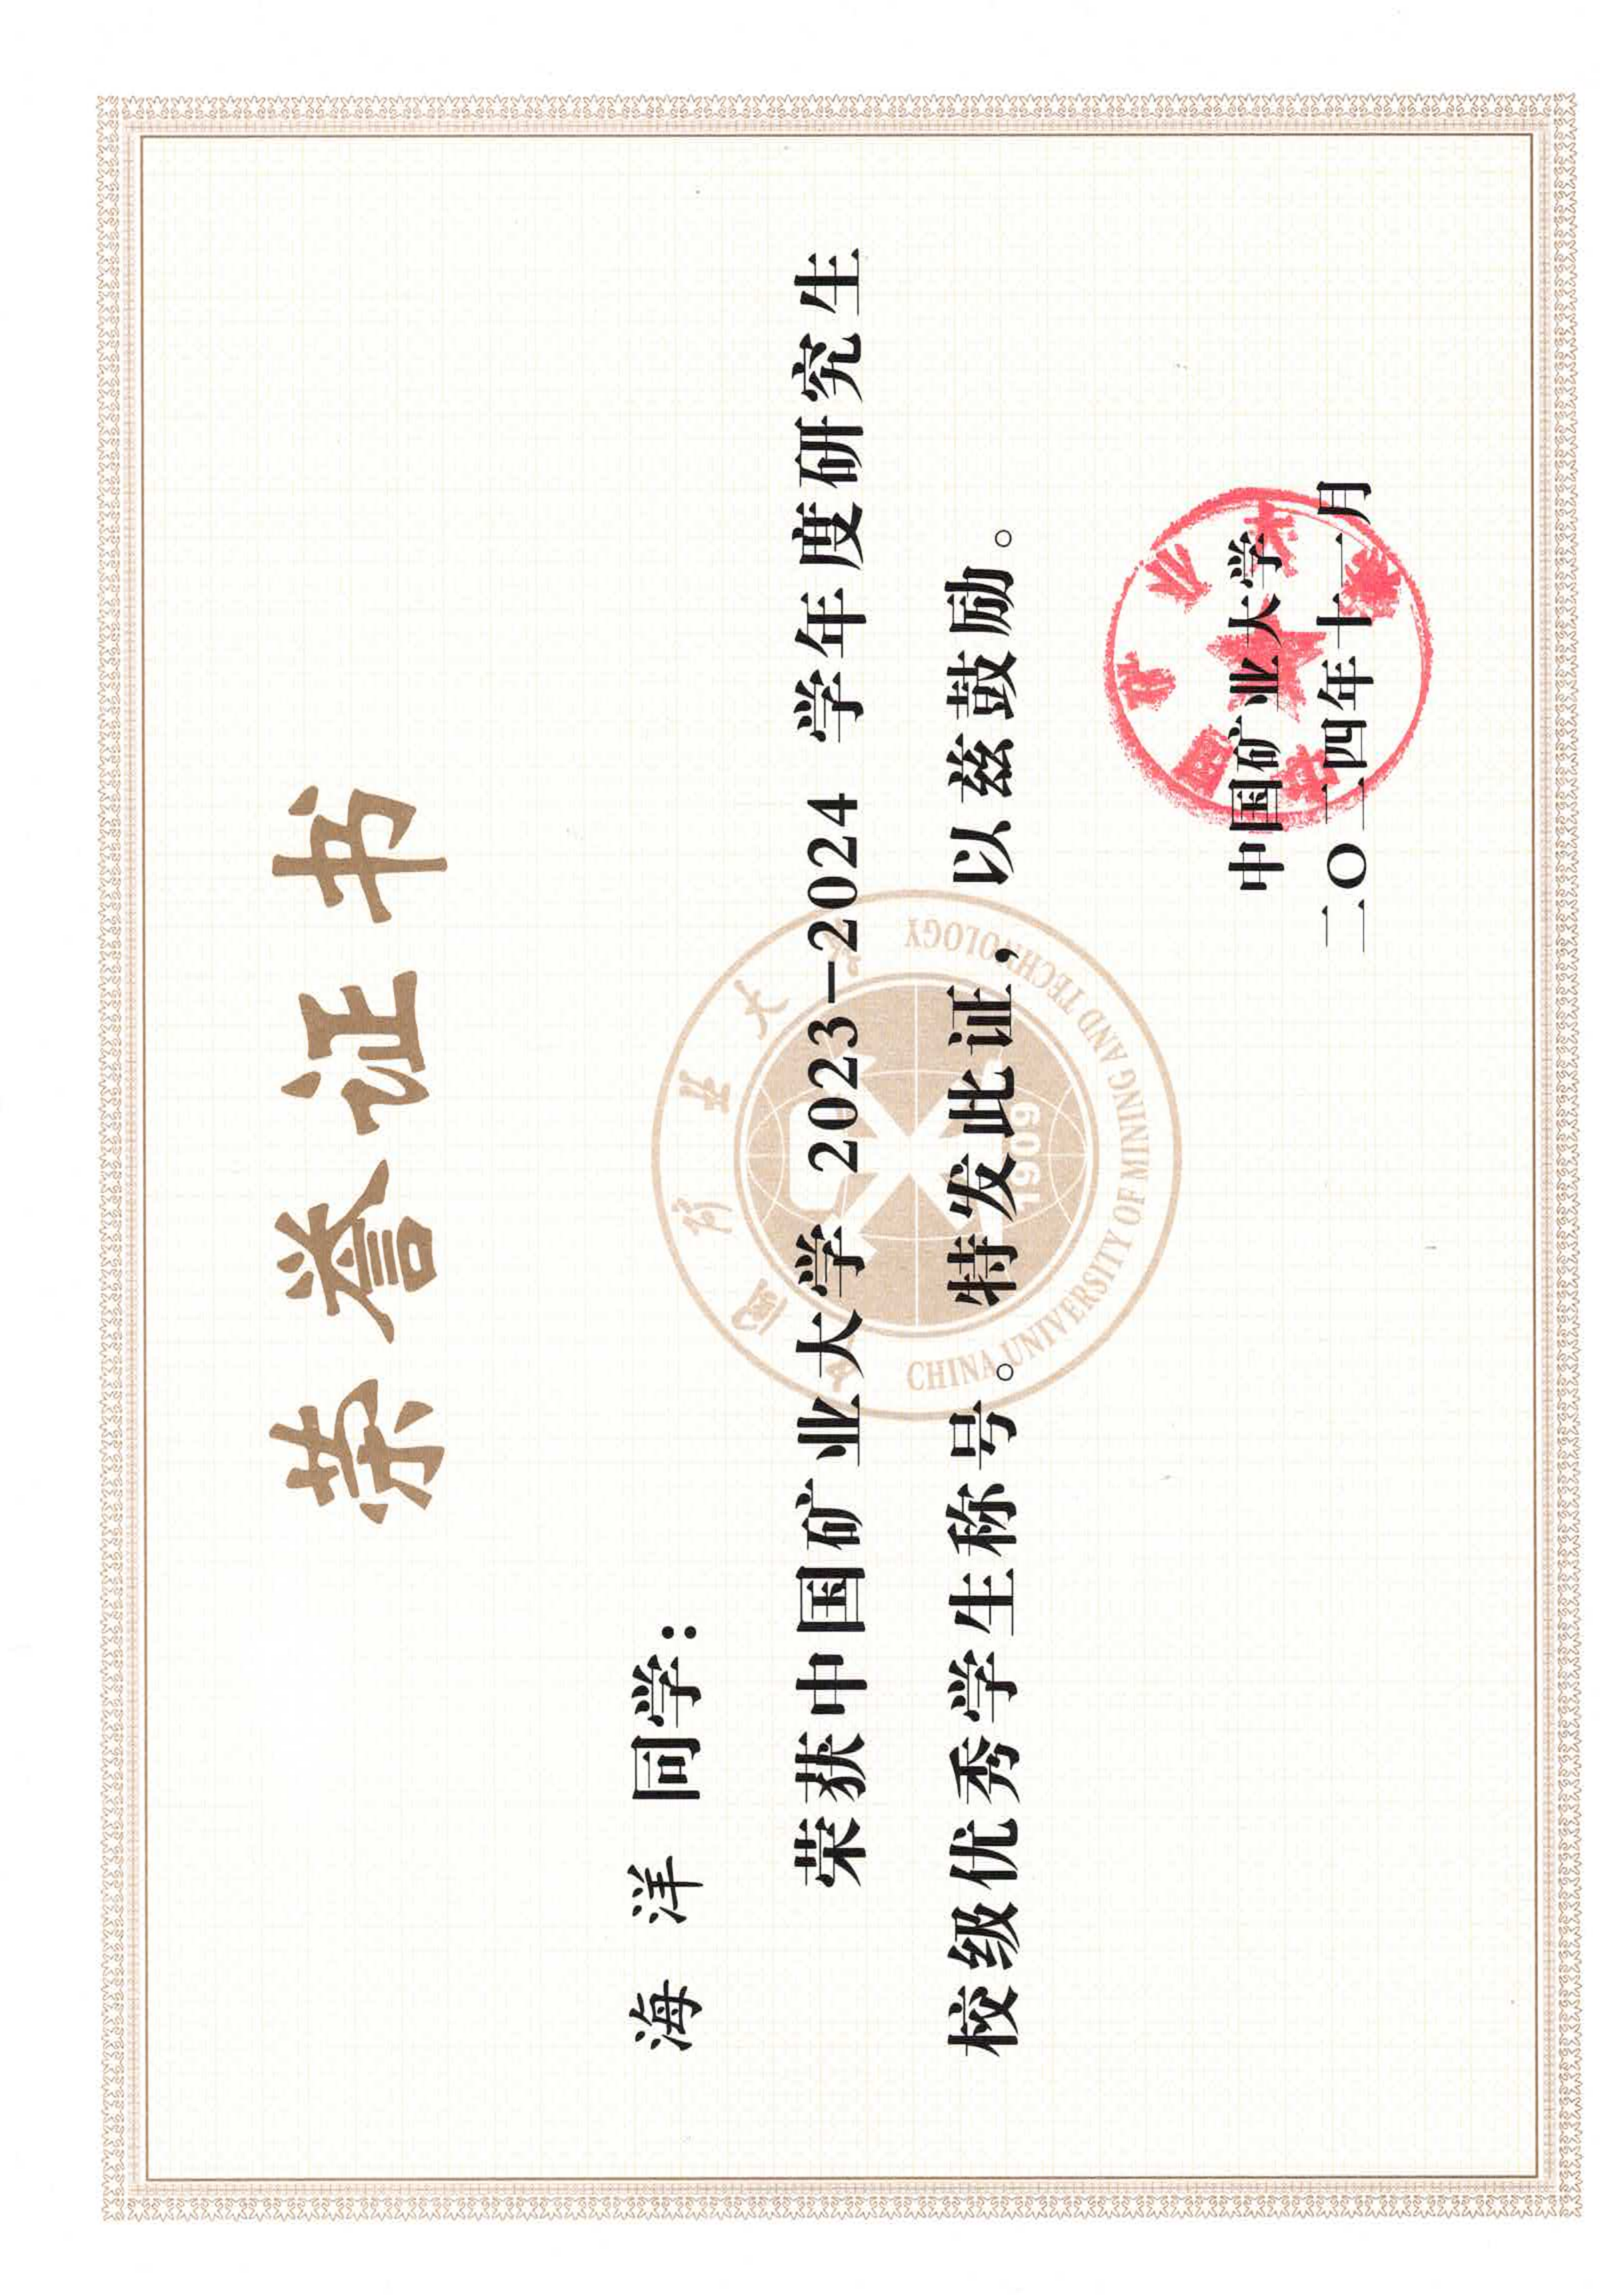 荣誉证书
海 洋 同学：
荣获中国矿业大学 2023-2024 学年度研究生
校级优秀学生称号。特发此证，以兹鼓励。
中国矿业大学
CHINA UNIVERSITY OF MINING AND TECHNOLOGY
1909
中国矿业大学
二〇二四年十一月